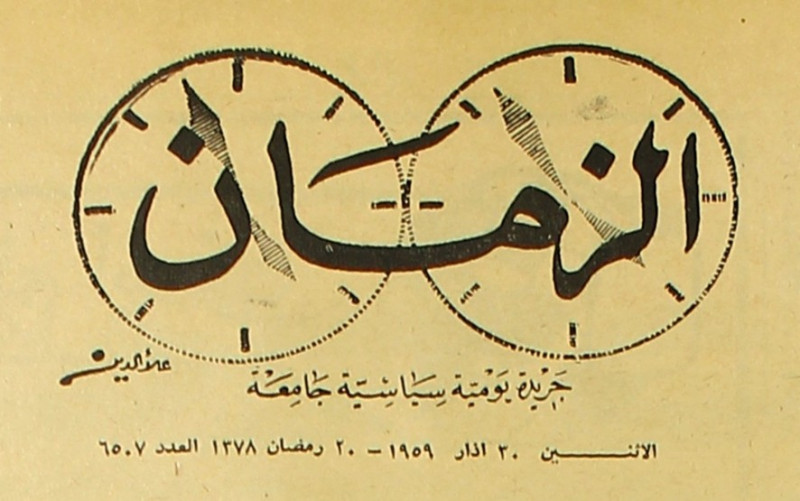 الزمان
علاء الدين
جريدة يومية سياسية جامعة
الاثنـــــين ٣٠ اذار ١٩٥٩ – ٢٠ رمضان ١٣٧٨ العدد ٦٥٠٧